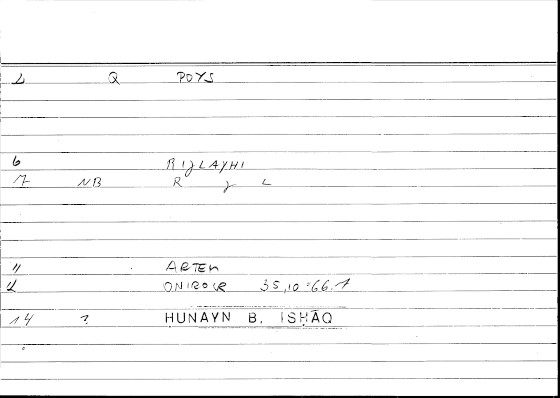 2 Q POYS
6 RIJLAYHI
7 NB R J L
11 ARTEM
12 ONIROCR 35,10=66.1
14 ? HUNAYN B. ISḤĀQ